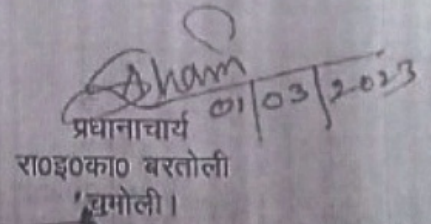 01/03/2023
प्रधानाचार्य
रा०इ०का० बरतोली
चमोली।